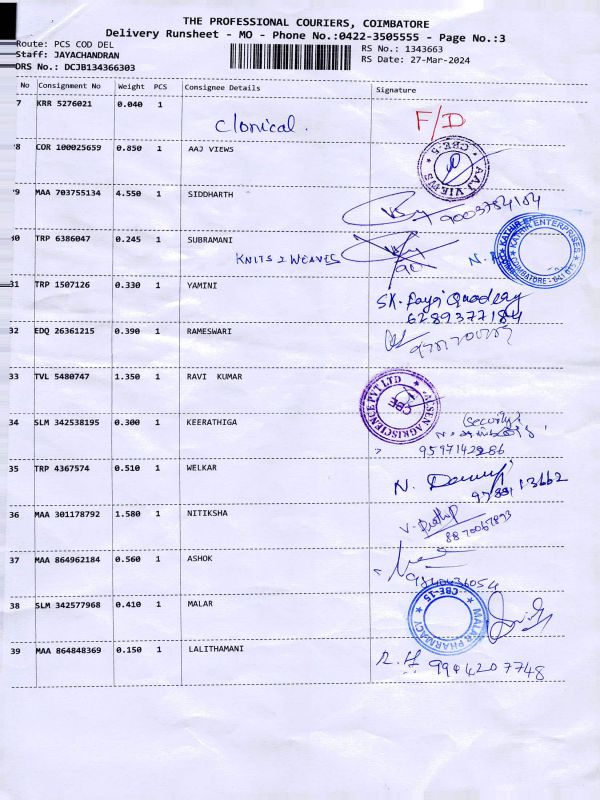 THE PROFESSIONAL COURIERS, COIMBATORE
Delivery Runsheet - MO - Phone No.:0422-3505555 - Page No.:3
Route: PCS COD DEL
Staff: JAYACHANDRAN
DRS No.: DCJB134366303
RS No.: 1343663
RS Date: 27-Mar-2024
No Consignment No Weight PCS Consignee Details Signature
7 KRR 5276021 0.040 1
Clonical. F/D
8 COR 100025659 0.850 1 AAJ VIEWS
AAJ-VIEWS CBE-5
9 MAA 703755134 4.550 1 SIDDHARTH
9003784104
0 TRP 6386047 0.245 1 SUBRAMANI
KNITS 2 WEAVES
KATHIR ENTERPRISES
31 TRP 1507126 0.330 1 YAMINI
6289377184
32 EDQ 26361215 0.390 1 RAMESWARI
33 TVL 5480747 1.350 1 RAVI KUMAR
AGRISCIENCE PVT LTD
CBE
34 SLM 342538195 0.300 1 KEERATHIGA
Security
9597142286
35 TRP 4367574 0.510 1 WELKAR
36 MAA 301178792 1.580 1 NITIKSHA
8870067893
37 MAA 864962184 0.560 1 ASHOK
38 SLM 342577968 0.410 1 MALAR
MALAR PHARMACY CBE-15
39 MAA 864848369 0.150 1 LALITHAMANI
9994207748